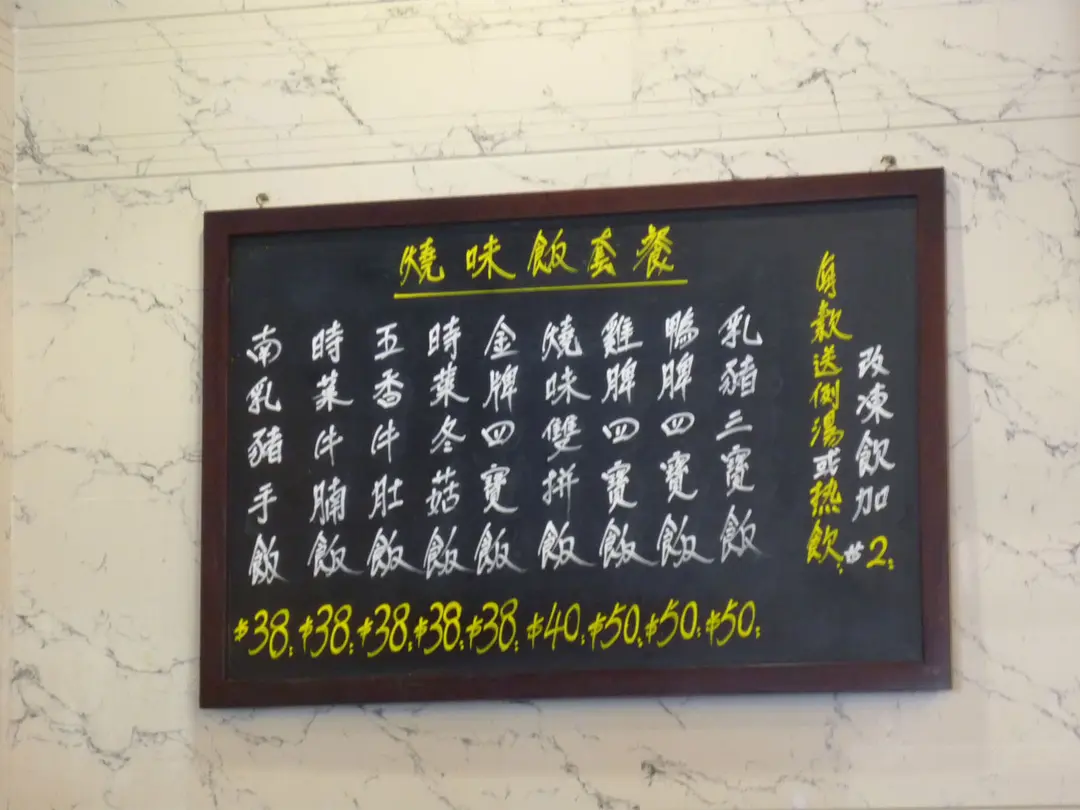 燒味飯套餐
南乳豬手飯 $38
時菜牛腩飯 $38
五香牛肚飯 $38
時菜冬菇飯 $38
金牌四寶飯 $38
燒味雙拼飯 $40
雞脾四寶飯 $50
鴨脾四寶飯 $50
乳豬三寶飯 $50
每款送例湯或热飲
改凍飲加$2